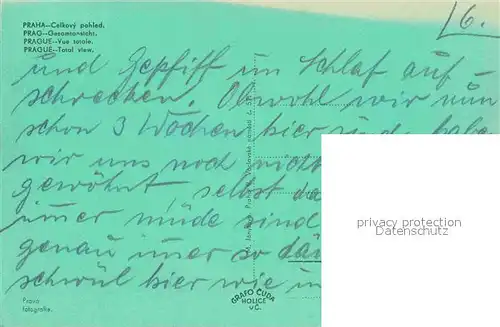 PRAHA—Celkový pohled.
PRAG—Gesamtansicht.
PRAGUE—Vue totale.
PRAGUE—Total view.
6.
und Gepfiff im Schlaf auf-
schrecken. Obwohl wir nun
schon 3 Wochen hier sind, habe
wir uns noch nicht
gewöhnt, selbst da
immer müde sind
genau immer so
schwül hier wie in
privacy protection
Praxo
fotografie.
GRAFO ČUDA
HOLICE
v Č.